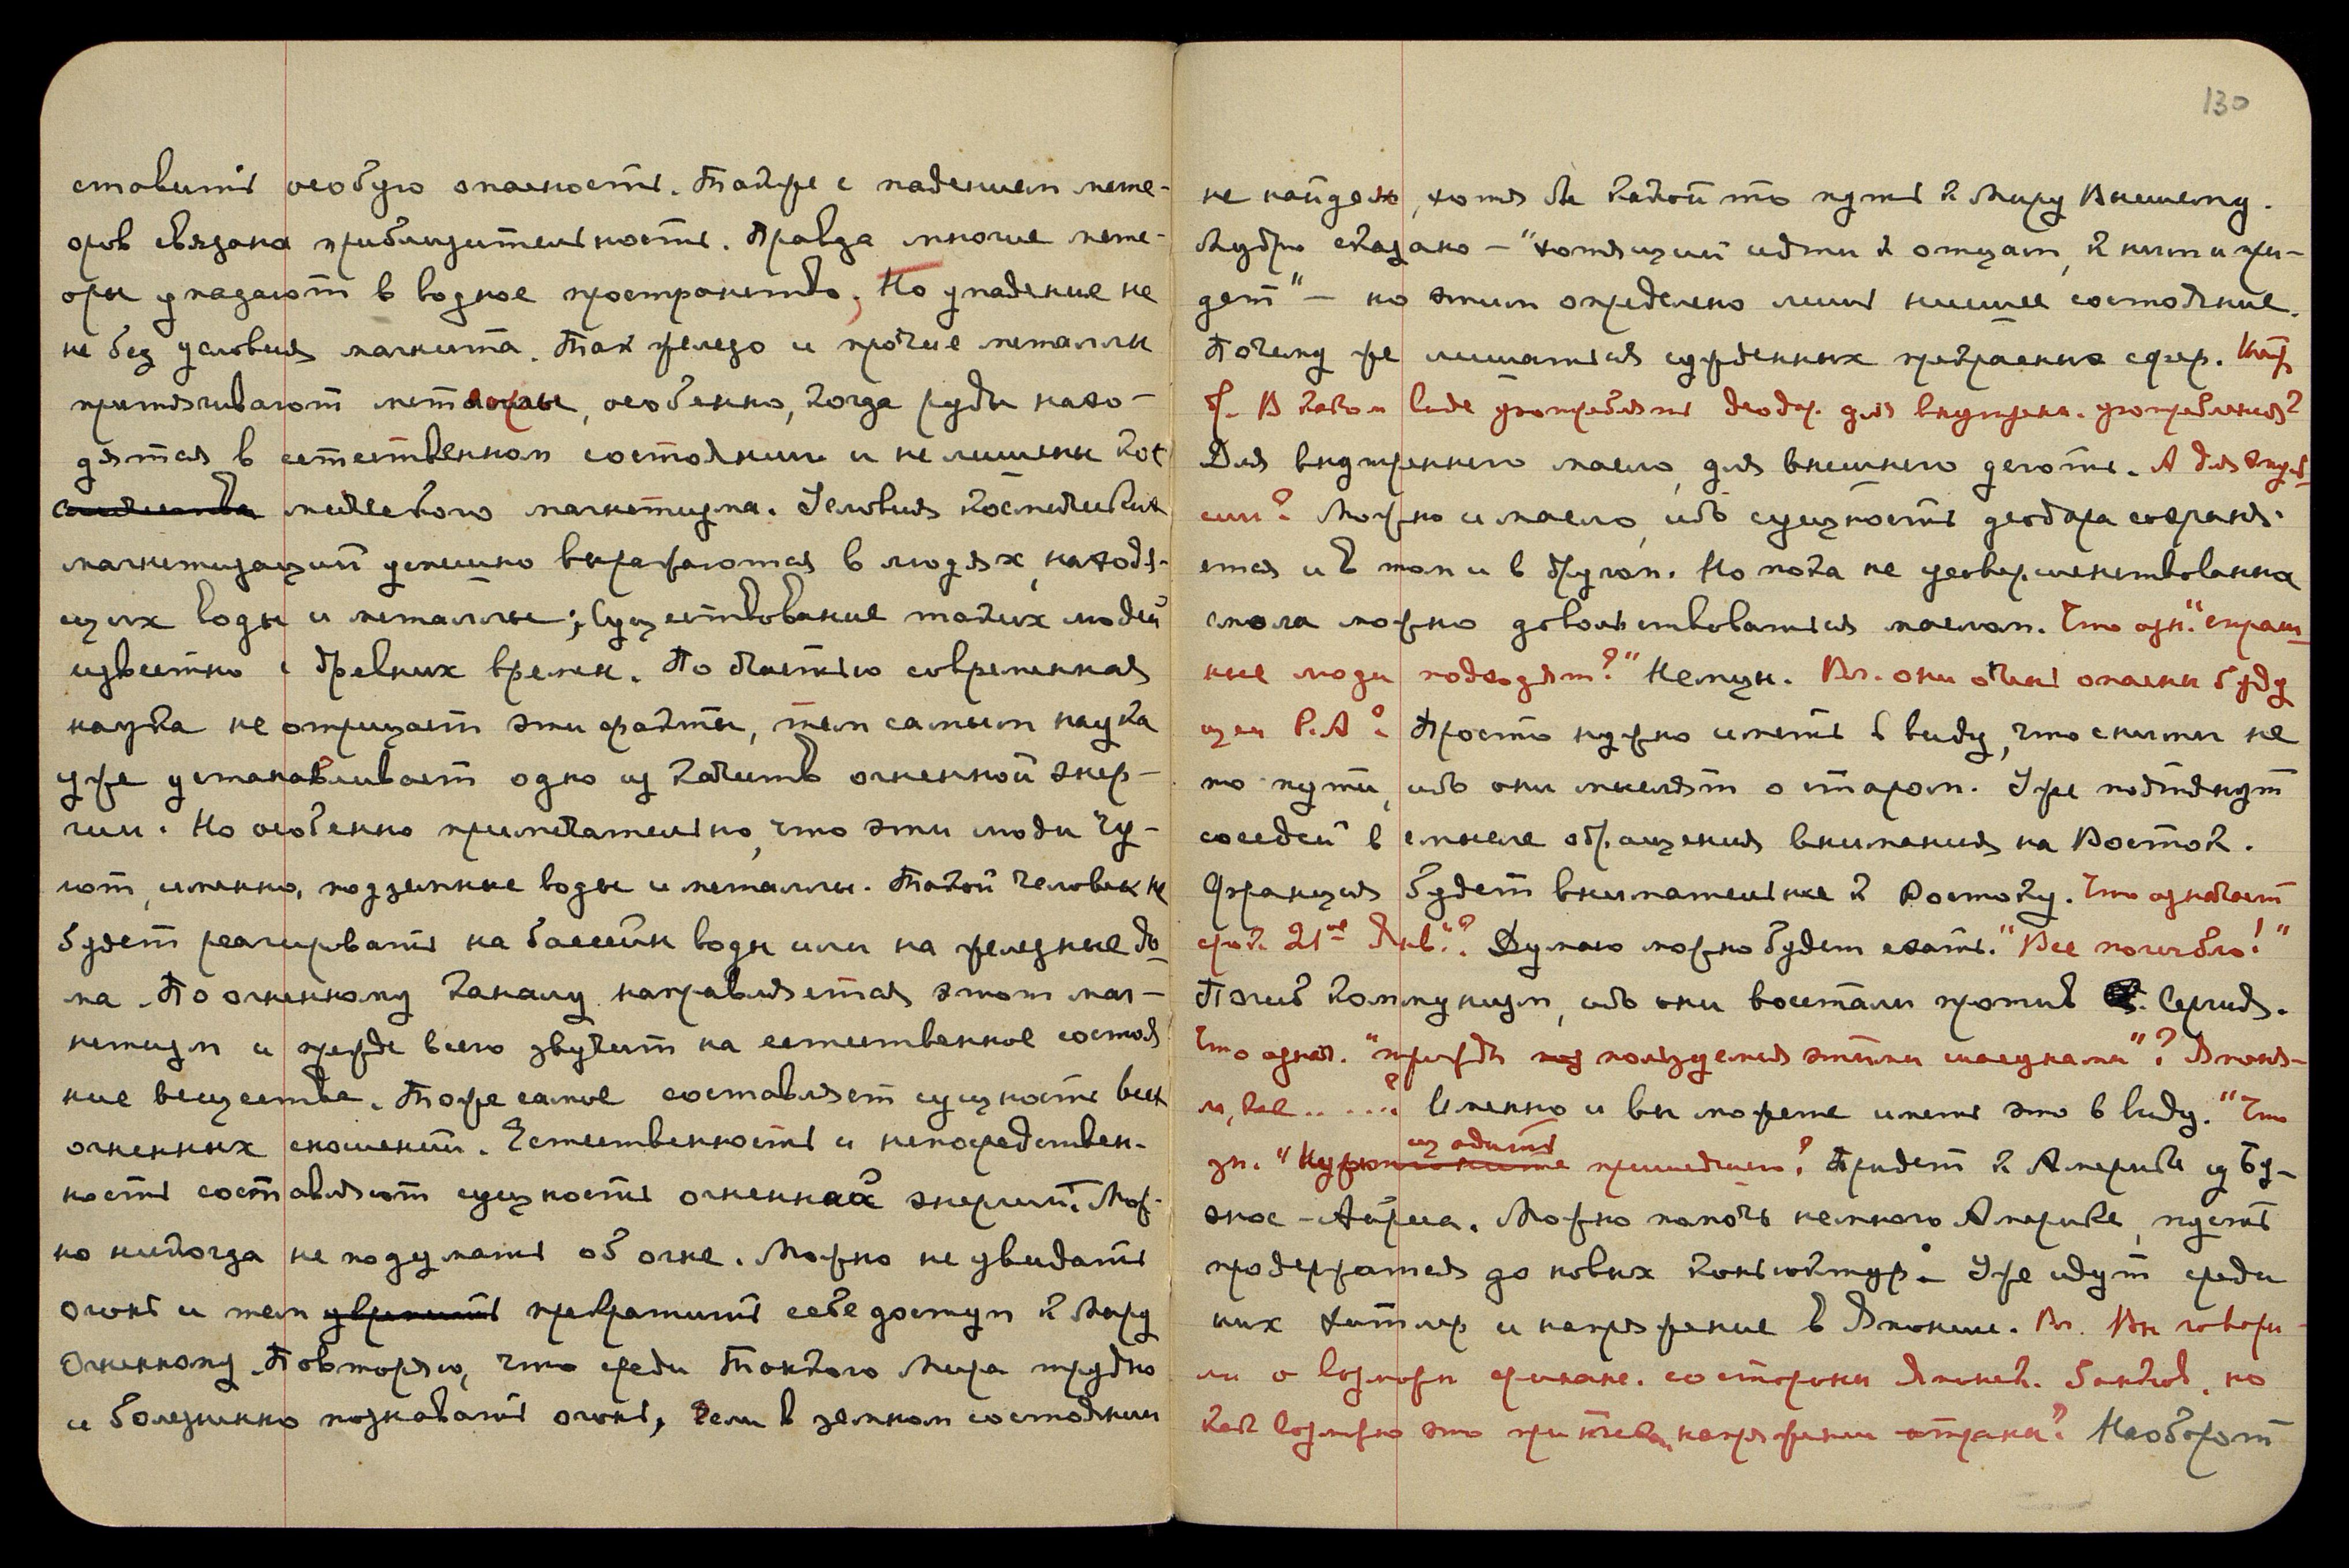 ставить особую опасность. Также с падением мете-
оров связана приблизительность. Правда многие мете-
оры упадают в водное пространство, Но упадение не
не без условия магнита. Так железо и прочие металлы
притягивают метеоры, особенно, когда руды нахо-
дятся в естественном состоянии и не лишены кос
мического магнетизма. Условия космических
магнетизаций успешно выражаются в людях, находя-
щих воды и металлы; Существование таких людей
известно с древних времен. По счастью современная
наука не отрицает эти факты, тем самым наука
уже устанавливает одно из качеств огненной энер-
гии. Но особенно примечательно, что эти люди чу-
ют, именно, подземные воды и металлы. Такой человек не
будет реагировать на бассейн воды или на железные до
ма. По огненному каналу направляется этот маг-
нетизм и прежде всего звучит на естественное состоя
ние вещества. Тоже самое составляет сущность всех
огненных сношений. Естественность и непосредствен-
ность составляют сущность огненной энергии. Мож-
но никогда не подумать об огне. Можно не увидать
огонь и тем прекратить себе доступ к Миру
Огненному. Повторяю, что среди Тонкого Мира трудно
и болезненно познавать огонь, если в земном состоянии
130
не найден, хотя бы какой то путь к Миру Высшему.
Мудро сказано — "хотящий идти к отцам, к ним и при-
дет" — но этим определено лишь низшее состояние.
Почему же лишаться сужденных прекрасных сфер.
В каком виде употреблять деодар для внутрен. употребления?
Для внутреннего масло, для внешнего деготь. А для эмуль
сии? Можно и масло, ибо сущность деодара сохраня-
ется и в том и в другом. Но пока не усовершенствованна
смола можно довольствоваться маслом. Что озн. "страш
ные люди подходят?" Немцы. Вл. они очень опасны буду
щей Просто нужно иметь в виду, что с ними не
по пути, ибо они мыслят о старом. Уже подтянут
соседей в смысле обращения внимания на Восток.
Франция будет внимательнее к Востоку. Что означает
срок 21ое Янв."? Думаю можно будет ехать. "Все погибло!"
Погиб коммунизм, ибо они восстали против Сергия.
Что означ. "трижды пользуемся этими"? Япон-
Именно и вы можете иметь это в виду. "Что
зн. пришедшего? Придет к Америке из Бу-
энос-Айреса. Можно помочь немного Америке, пусть
продержаться до новых коньюктур. Уже идут среди
них Хитлер и напряжение в Японии. Вл. Вы говори
ли о возможн финанс. со стороны Японск. банков, но
как возможно это при напряжении страны? Наоборот